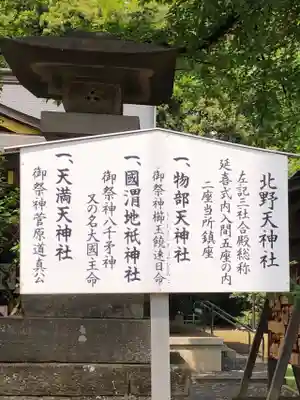 北野天神社
左記三社合殿総称
延喜式内入間五座の内
二座当所鎮座
一、物部天神社
御祭神櫛玉饒速日命
一、國渭地祇神社
御祭神八千矛神
又の名大國主命
一、天満天神社
御祭神菅原道真公